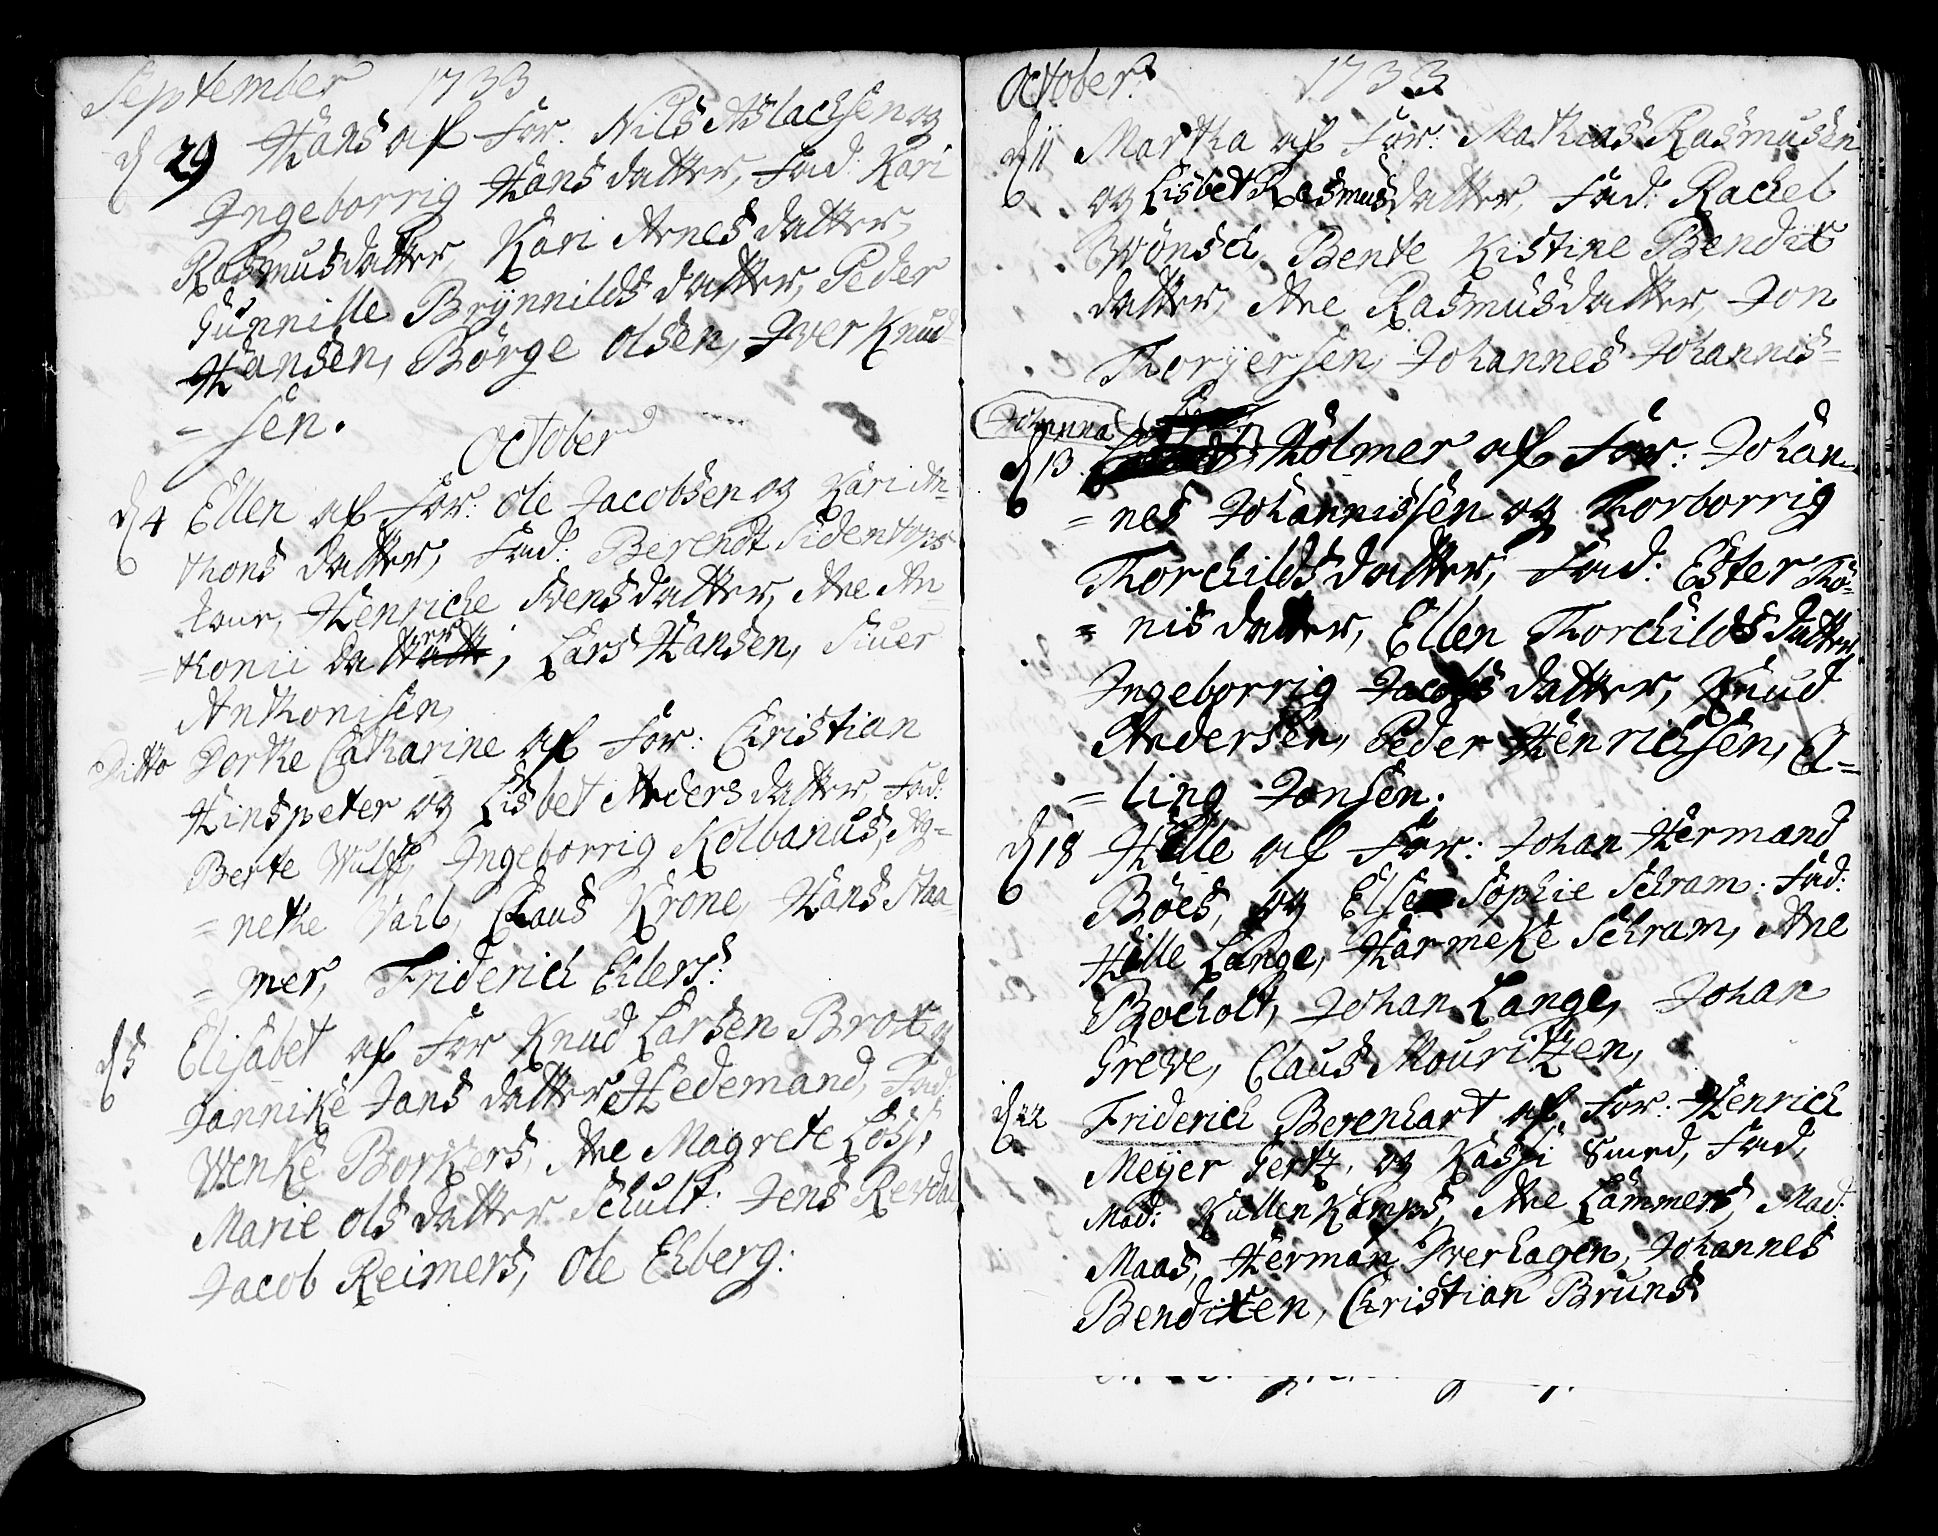 September 1733
d 29 Hans af For: Nils Aslachsen og
Ingeborrig Hansdatter, Fad: Kari
Rasmusdatter, Kari Arnesdatter,
Gunnille Brÿnnildsdatter, Peder
Hansen, Börge Olsen, Iver Knud
= sen.
October
d 4 Ellen af For: Ole Jacobsen og Kari An=
thons datter, Fad: Berendt Sidentops
Henriche Svensdatter, Ane An=
= thonii datter, Lars Hansen, Siuer
Anthonisen,
Ditto Dorthe Catharine af For: Christian
Hinspeter og Lisbet Andersdatter, Fad:
Berte Wulff, Ingeborrig Kolbanus, Ag=
= nethe Vahl, Claus Krone, Hans Staa=
= mer, Friderich Ehlers:
d 5 Elisabet af For Knud Larsen Brox og
Jannike Jans datter Hedemand, Fad:
Wenke Borkers, Ane Magrete Loss,
Marie Olsdatter Schult: Jens Revdal
Jacob Reimers, Ole Ehberg:
October 1733
d 11 Martha af For: Mathias Rasmusen
og Lisbet Rasmusdatter, Fad: Rachel
Wönsch, Bente Kistine Bendix
datter, Ane Rasmusdatter, Jon
Thoryersen, Johannes Johannis=
Johanna
d 13 Holmer af For: Johan=
= nes Johannissen og Thorborrig
Thorchildsdatter, Fad: Ester Thö=
= nisdatter, Ellen Thorchildsdatter,
Ingeborrig Jacobsdatter, Knud
Andersen, Peder Henrichsen, El=
= ling Jonsen.
d 18 Hille af For: Johan Hermand
Böes, og Else Sophie Schram: Fad:
Hille Lange, Harmeke Schram, Ane
Bocholt, Johan Lange, Johan
Greve, Claus Mouritzen,
d 22 Friderich Berenhart af For: Henrich
Meÿer Gertz, og Kassi Smed, Fad,
Mad: Kullenkamps, Ane Lammers, Mad:
Maas, Herman Iverhagen, Johannes
Bendixen, Christian Bruns